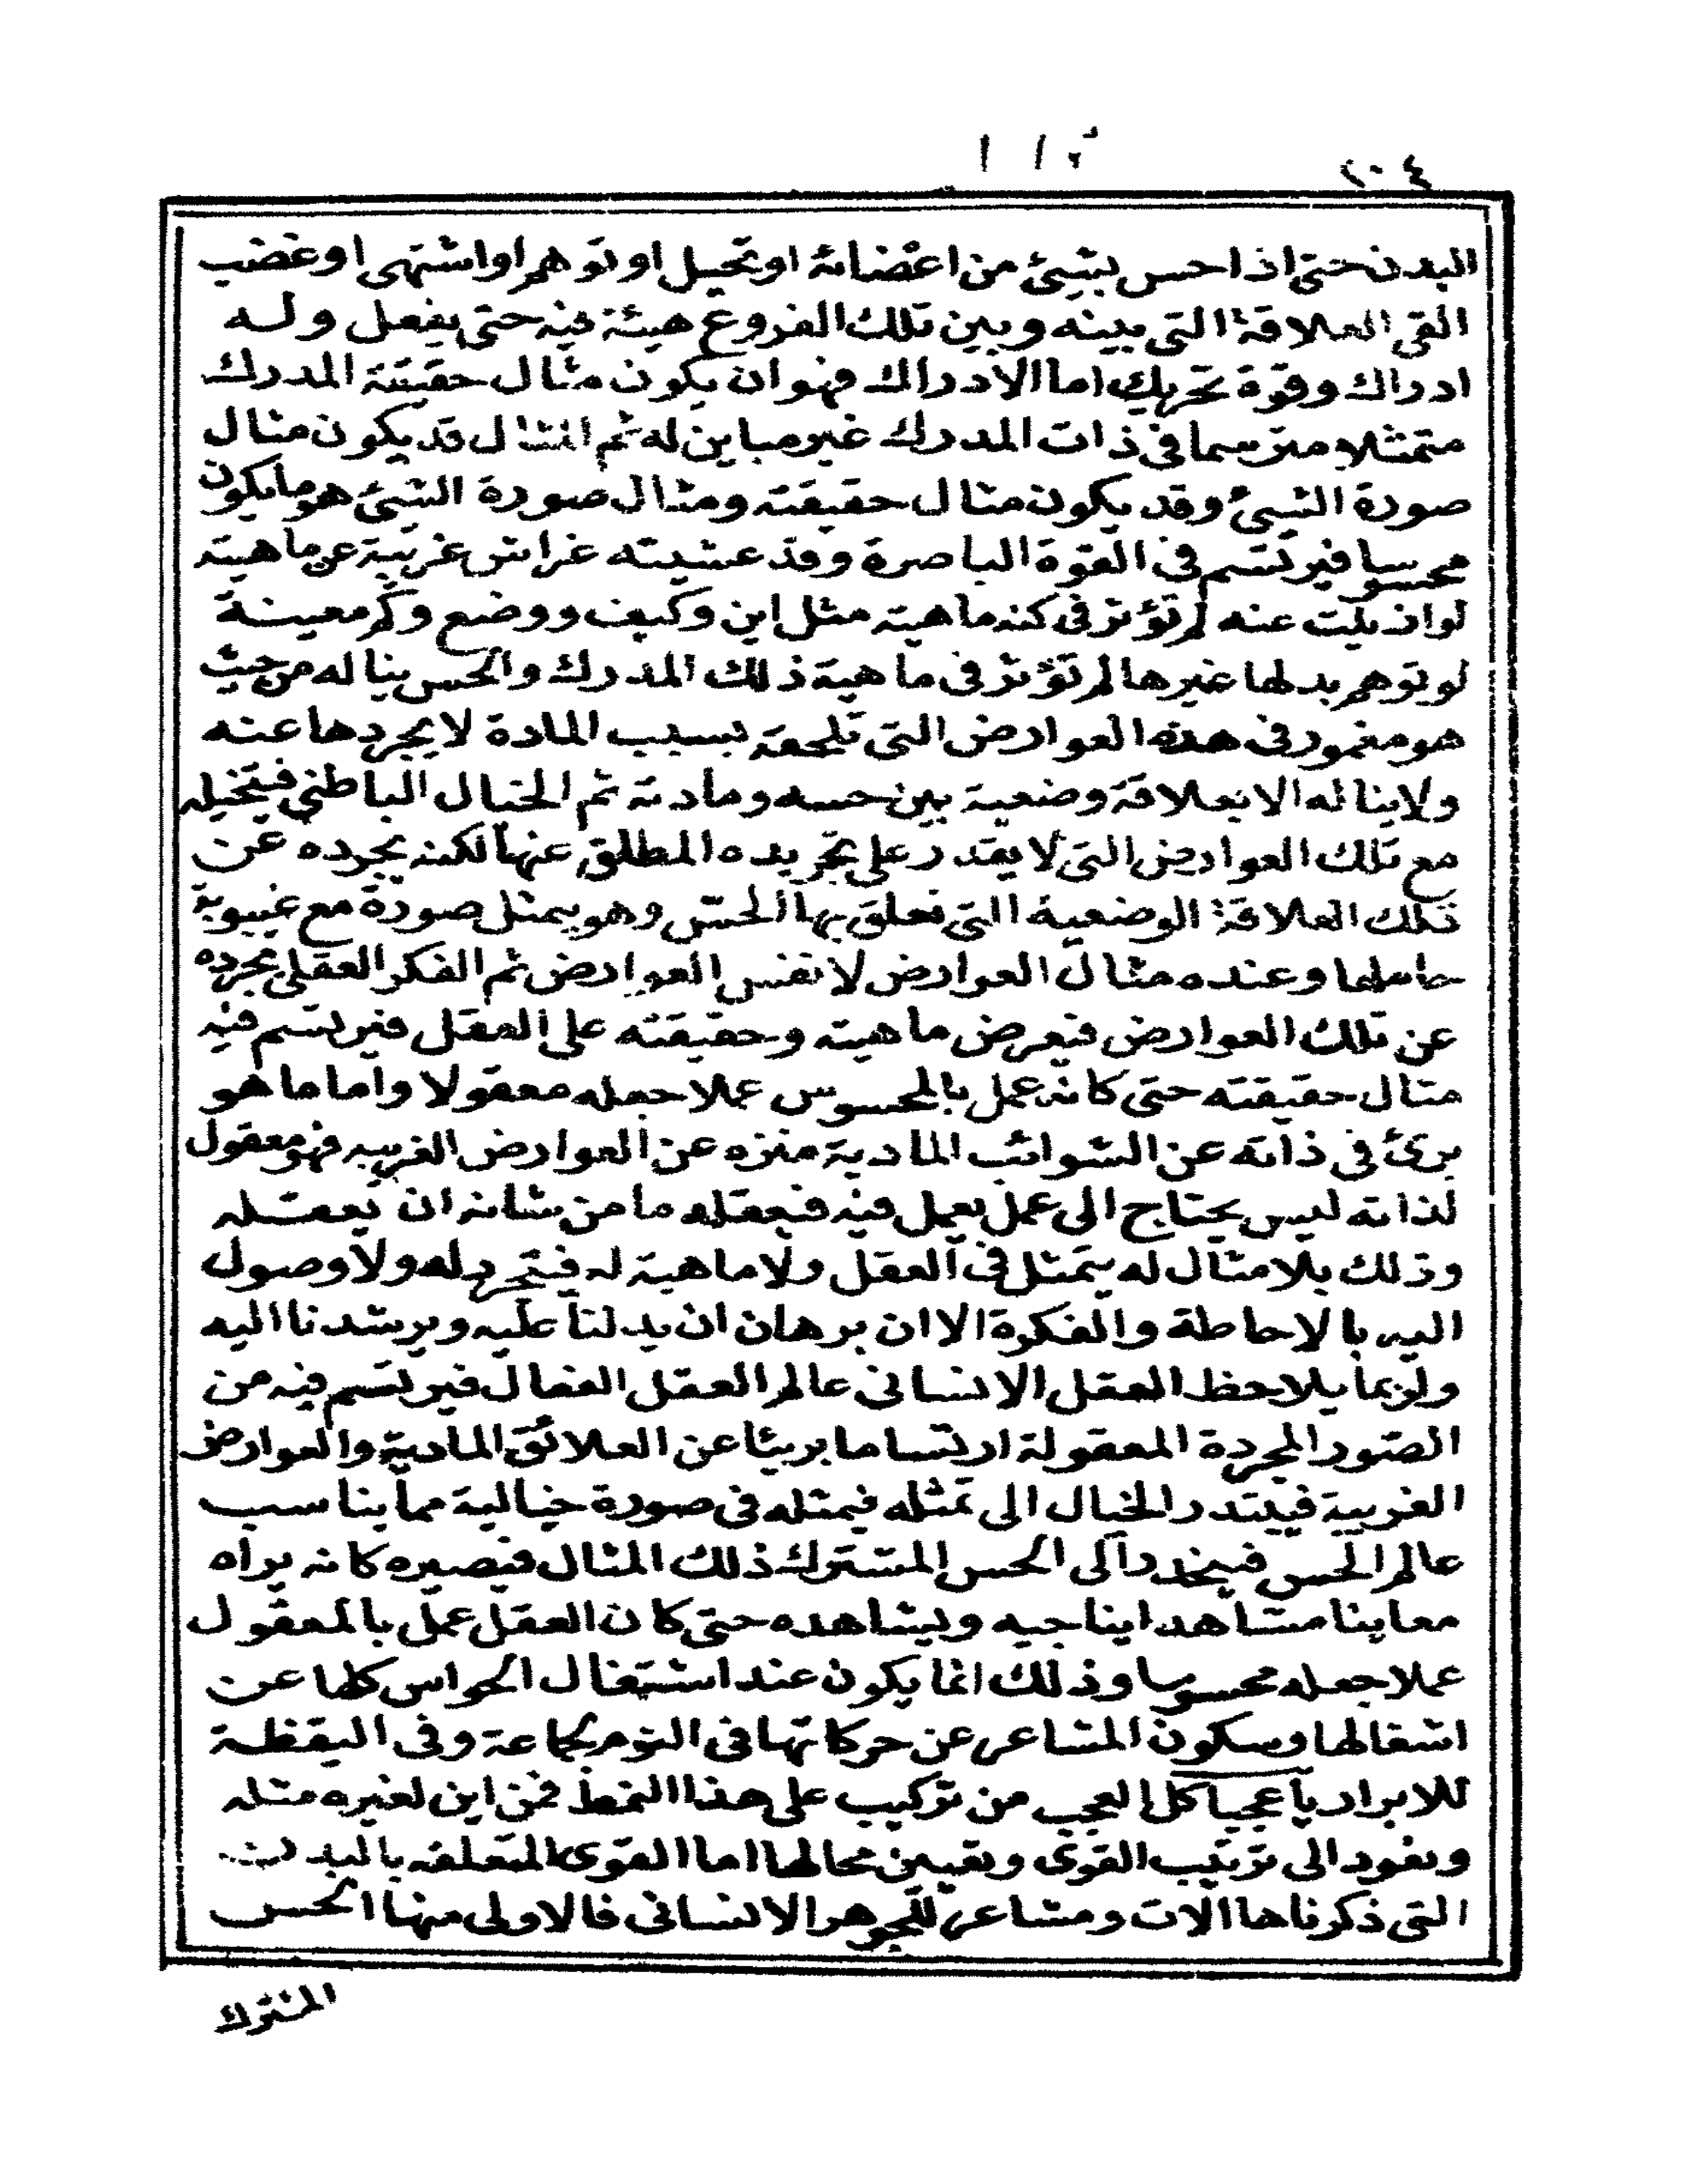 ٢٠٤
البدن حتى اذا احس بشئ من اعضائه او تخيل او توهم او اشتهى او غضب
القى العلاقة التى بينه وبين تلك الفروع هيئة فيه حتى يفعل وله
ادراك وقوة تحريك اما الادراك فهو ان يكون مثال حقيقة المدرك
متمثلا مترسما فى ذات المدرك غير مباين له ثم المثال قد يكون مثال
صورة الشئ وقد يكون مثال حقيقته ومثال صورة الشئ هو ما يكون
محسوسا فيرتسم فى القوة الباصرة وقد غشيته غواش غريبة عن ماهيته
لو ازيلت عنه لم تؤثر فى كنه ماهيته مثل اين وكيف ووضع وكم معينة
لو توهم بدلها غيرها لم تؤثر فى ماهية ذلك المدرك والحس يناله من حيث
هو مغمور فى هذه العوارض التى تلحقه بسبب المادة لا يجردها عنه
ولا يناله الا بعلاقة وضعية بين حسه ومادته ثم الخيال الباطنى فيتخيله
مع تلك العوارض التى لا يقدر على تجريده المطلق عنها لكنه يجرده عن
تلك العلاقة الوضعية التى تعلق بها الحس وهو يمثل صورة مع غيبوبة
حاملها وعنده مثال العوارض لا نفس العوارض ثم الفكر العقلى يجرده
عن تلك العوارض فيعرض ماهيته وحقيقته على العقل فيرتسم فيه
مثال حقيقته حتى كانه عمل بالمحسوس عملا جعله معقولا واما ما هو
برئ فى ذاته عن الشوائب المادية منزه عن العوارض الغريبه فهو معقول
لذاته ليس يحتاج الى عمل يعمل فيه فيعقله ما من شانه ان يعقله
وذلك بلا مثال له يتمثل فى العقل ولا ماهية له فيتجرد له ولا وصول
اليه بالاحاطة والفكرة الا ان برهان ان يدلنا عليه ويرشدنا اليه
ولربما يلاحظ العقل الانسانى عالم العقل الفعال فيرتسم فيه من
الصور المجردة المعقولة ارتساما بريئا عن العلائق المادية والعوارض
الغريبة فيبتدر الخيال الى تمثله فيمثله فى صورة خيالية مما يناسب
عالم الحس فينحدر الى الحس المشترك ذلك المثال فيصيره كانه يراه
معاينا مشاهدا يناجيه ويشاهده حتى كان العقل عمل بالمعقول
عملا جعله محسوسا وذلك انما يكون عند اشتغال الحواس كلها عن
اشغالها وسكون المشاعر عن حركاتها فى النوم لجماعة وفى اليقظة
للابرار يا عجبا كل العجب من تركيب على هذا النمط فمن اين لغيره مثله
ونعود الى ترتيب القوى وتعيين محالها اما القوى المتعلقه بالبدن
التى ذكرناها الات ومشاعر للجوهر الانسانى فالاولى منها الحس
المشترك